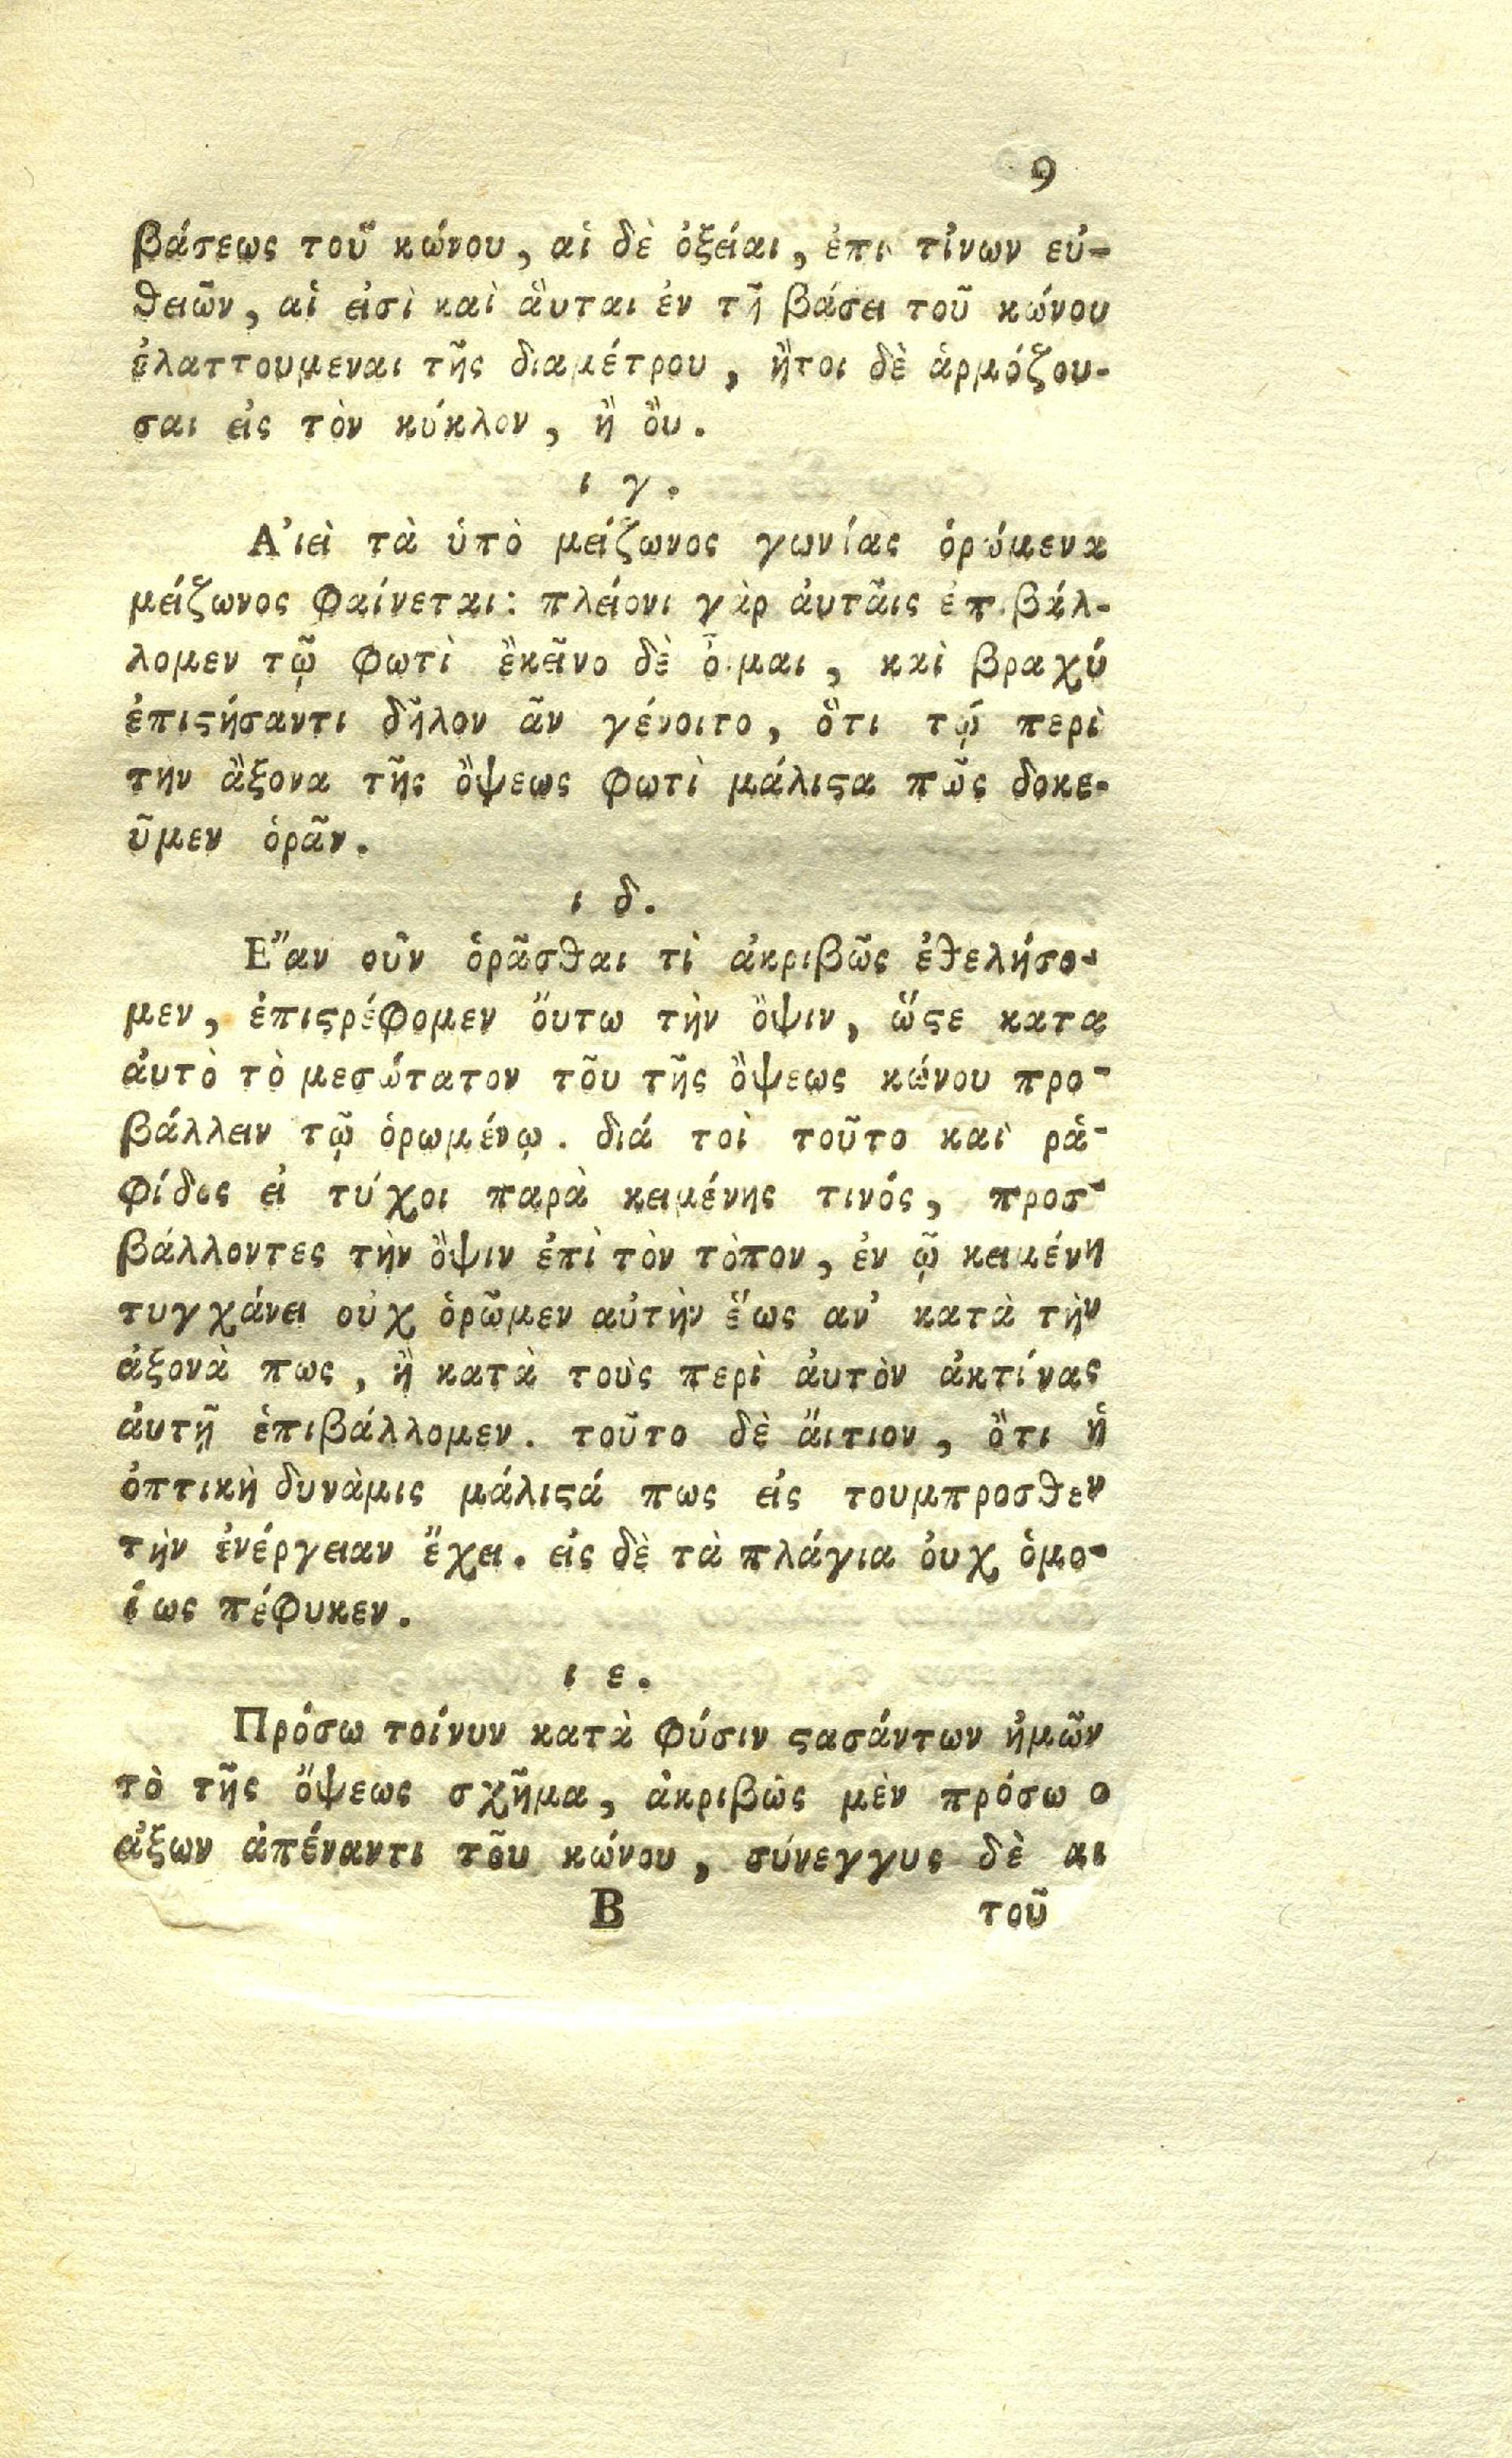 9
βάσεως τοῦ κώνου, αἱ δὲ ὀξείαι, ἐπι τίνων εὐ-
θειῶν, αἱ εἰσὶ καὶ ἃυται ἐν τῇ βάσει τοῦ κώνου
ἐλαττουμεναι τῆς διαμέτρου, ἤτοι δὲ ἁρμόζου-
σαι εἰς τὸν κύκλον, ἢ ὂυ.
ι γ.
Α᾿ιεὶ τὰ ὑπὸ μείζωνος γωνίας ὁρώμενα
μείζωνος φαίνεται: πλείονι γὰρ ἀυταῖς ἐπιβάλ-
λομεν τῷ φωτὶ ἒκεῖνο δὲ ὀιμαι, καὶ βραχύ
ἐπιϛήσαντι δῆλον ἂν γένοιτο, ὅτι τῷ περὶ
την ἂξονα τῆς ὂψεως φωτὶ μάλιϛα πῶς δοκε-
ῦμεν ὁρᾶν.
ι δ.
Ε῎αν οὖν ὁρᾶσθαι τὶ ἀκριβῶς ἐθελήσο-
μεν, ἐπιϛρέφομεν ὅυτω τὴν ὂψιν, ὥϛε κατα
ἀυτὸ τὸ μεσώτατον τοῦ τῆς ὂψεως κώνου προ-
βάλλειν τῷ ὁρωμένῳ. διά τοὶ τοῦτο καὶ ρἁ-
φίδος εἰ τύχοι παρὰ κειμένης τινός, προσ-
βάλλοντες τὴν ὂψιν ἐπὶ τὸν τὸπον, ἐν ᾧ κειμένη
τυγχάνει οὐχ ὁρῶμεν αὐτὴν ἕως αν᾿ κατὰ τὴν
ἀξονὰ πως, ἢ κατὰ τοὺς περὶ ἀυτὸν ἀκτίνας
ἀυτῇ ἐπιβάλλομεν. τοῦτο δὲ ἄιτιον, ὅτι ἡ
ὀπτικὴ δυνὰμις μάλιϛά πως εἰς τουμπροσθεν
τὴν ἐνέργειαν ἔχει. εἰς δὲ τὰ πλάγια ὀυχ ὁμο-
ίως πέφυκεν.
ι ε.
Πρόσω τοίνυν κατὰ φύσιν ϛασάντων ἡμῶν
τὸ τῆς ὄψεως σχῆμα, ἀκριβῶς μὲν πρόσω ο
ἀξων ἀπέναντι τοῦ κώνου, σύνεγγυς δὲ αι
Β τοῦ